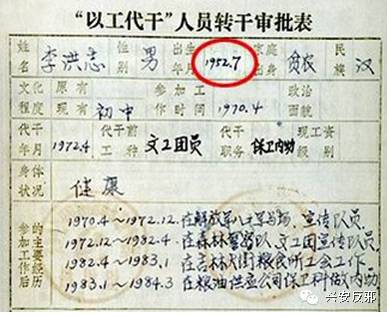 “以工代干”人员转干审批表
姓名 李洪志 性别 男 出生年月 1952.7 家庭出身 贫农 民族 汉
文化程度 原有 现有 初中 参加工作时间 1970.4 政治面貌
代干年月 1972.4 代干前工种 文工团员 现代干职务 保卫内勤 现工资级别
身体状况 健康
参加工作后的主要经历
1970.4～1972.12. 在解放军八一军马场、宣传队员.
1972.12～1982.4. 在森林警察队文工团宣传队员.
1982.4～1983.1 在吉林大街粮食所工会工作
1983.1～1984.3 在粮油供应公司保卫科做内勤
兴安反邪